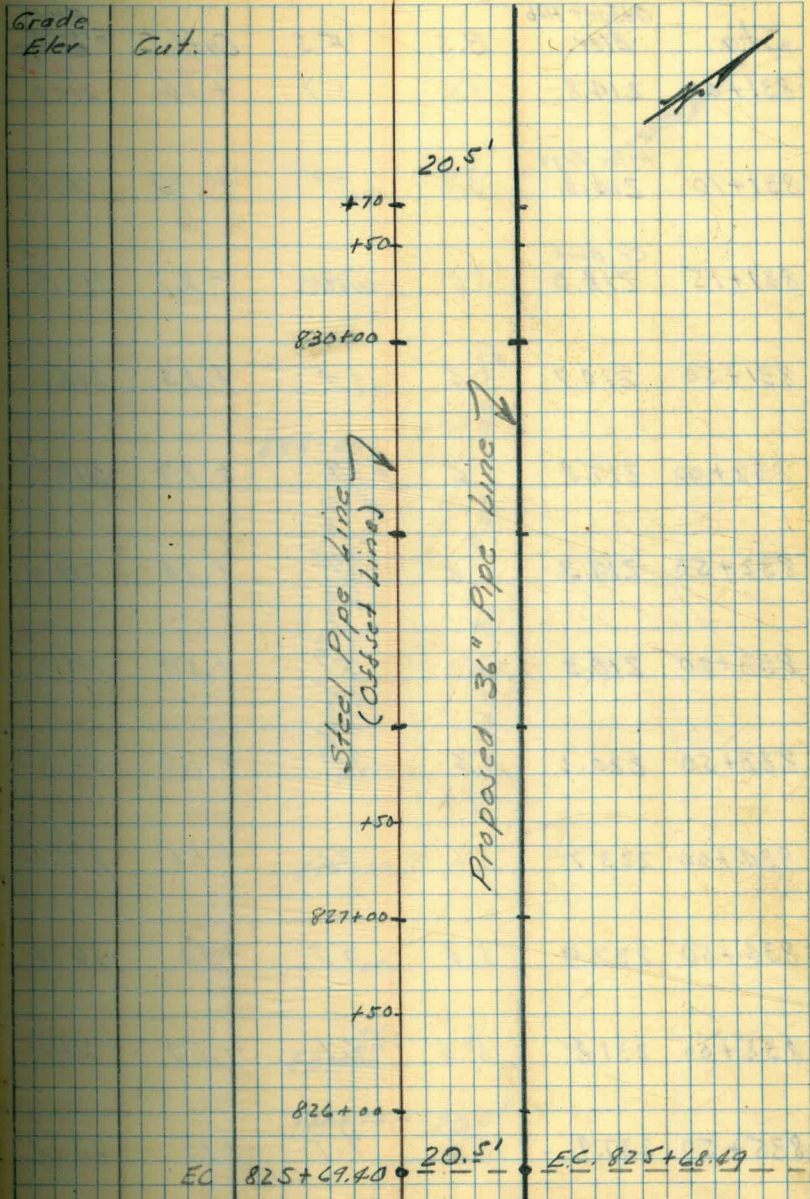 Grade
Elev Cut.
N
20.5'
+70
+50
830+00
Steel Pipe Line
(Offset Line)
Proposed 36" Pipe Line
+50
827+00
+50
826+00
EC 825+69.40 20.5' E.C. 825+68.49